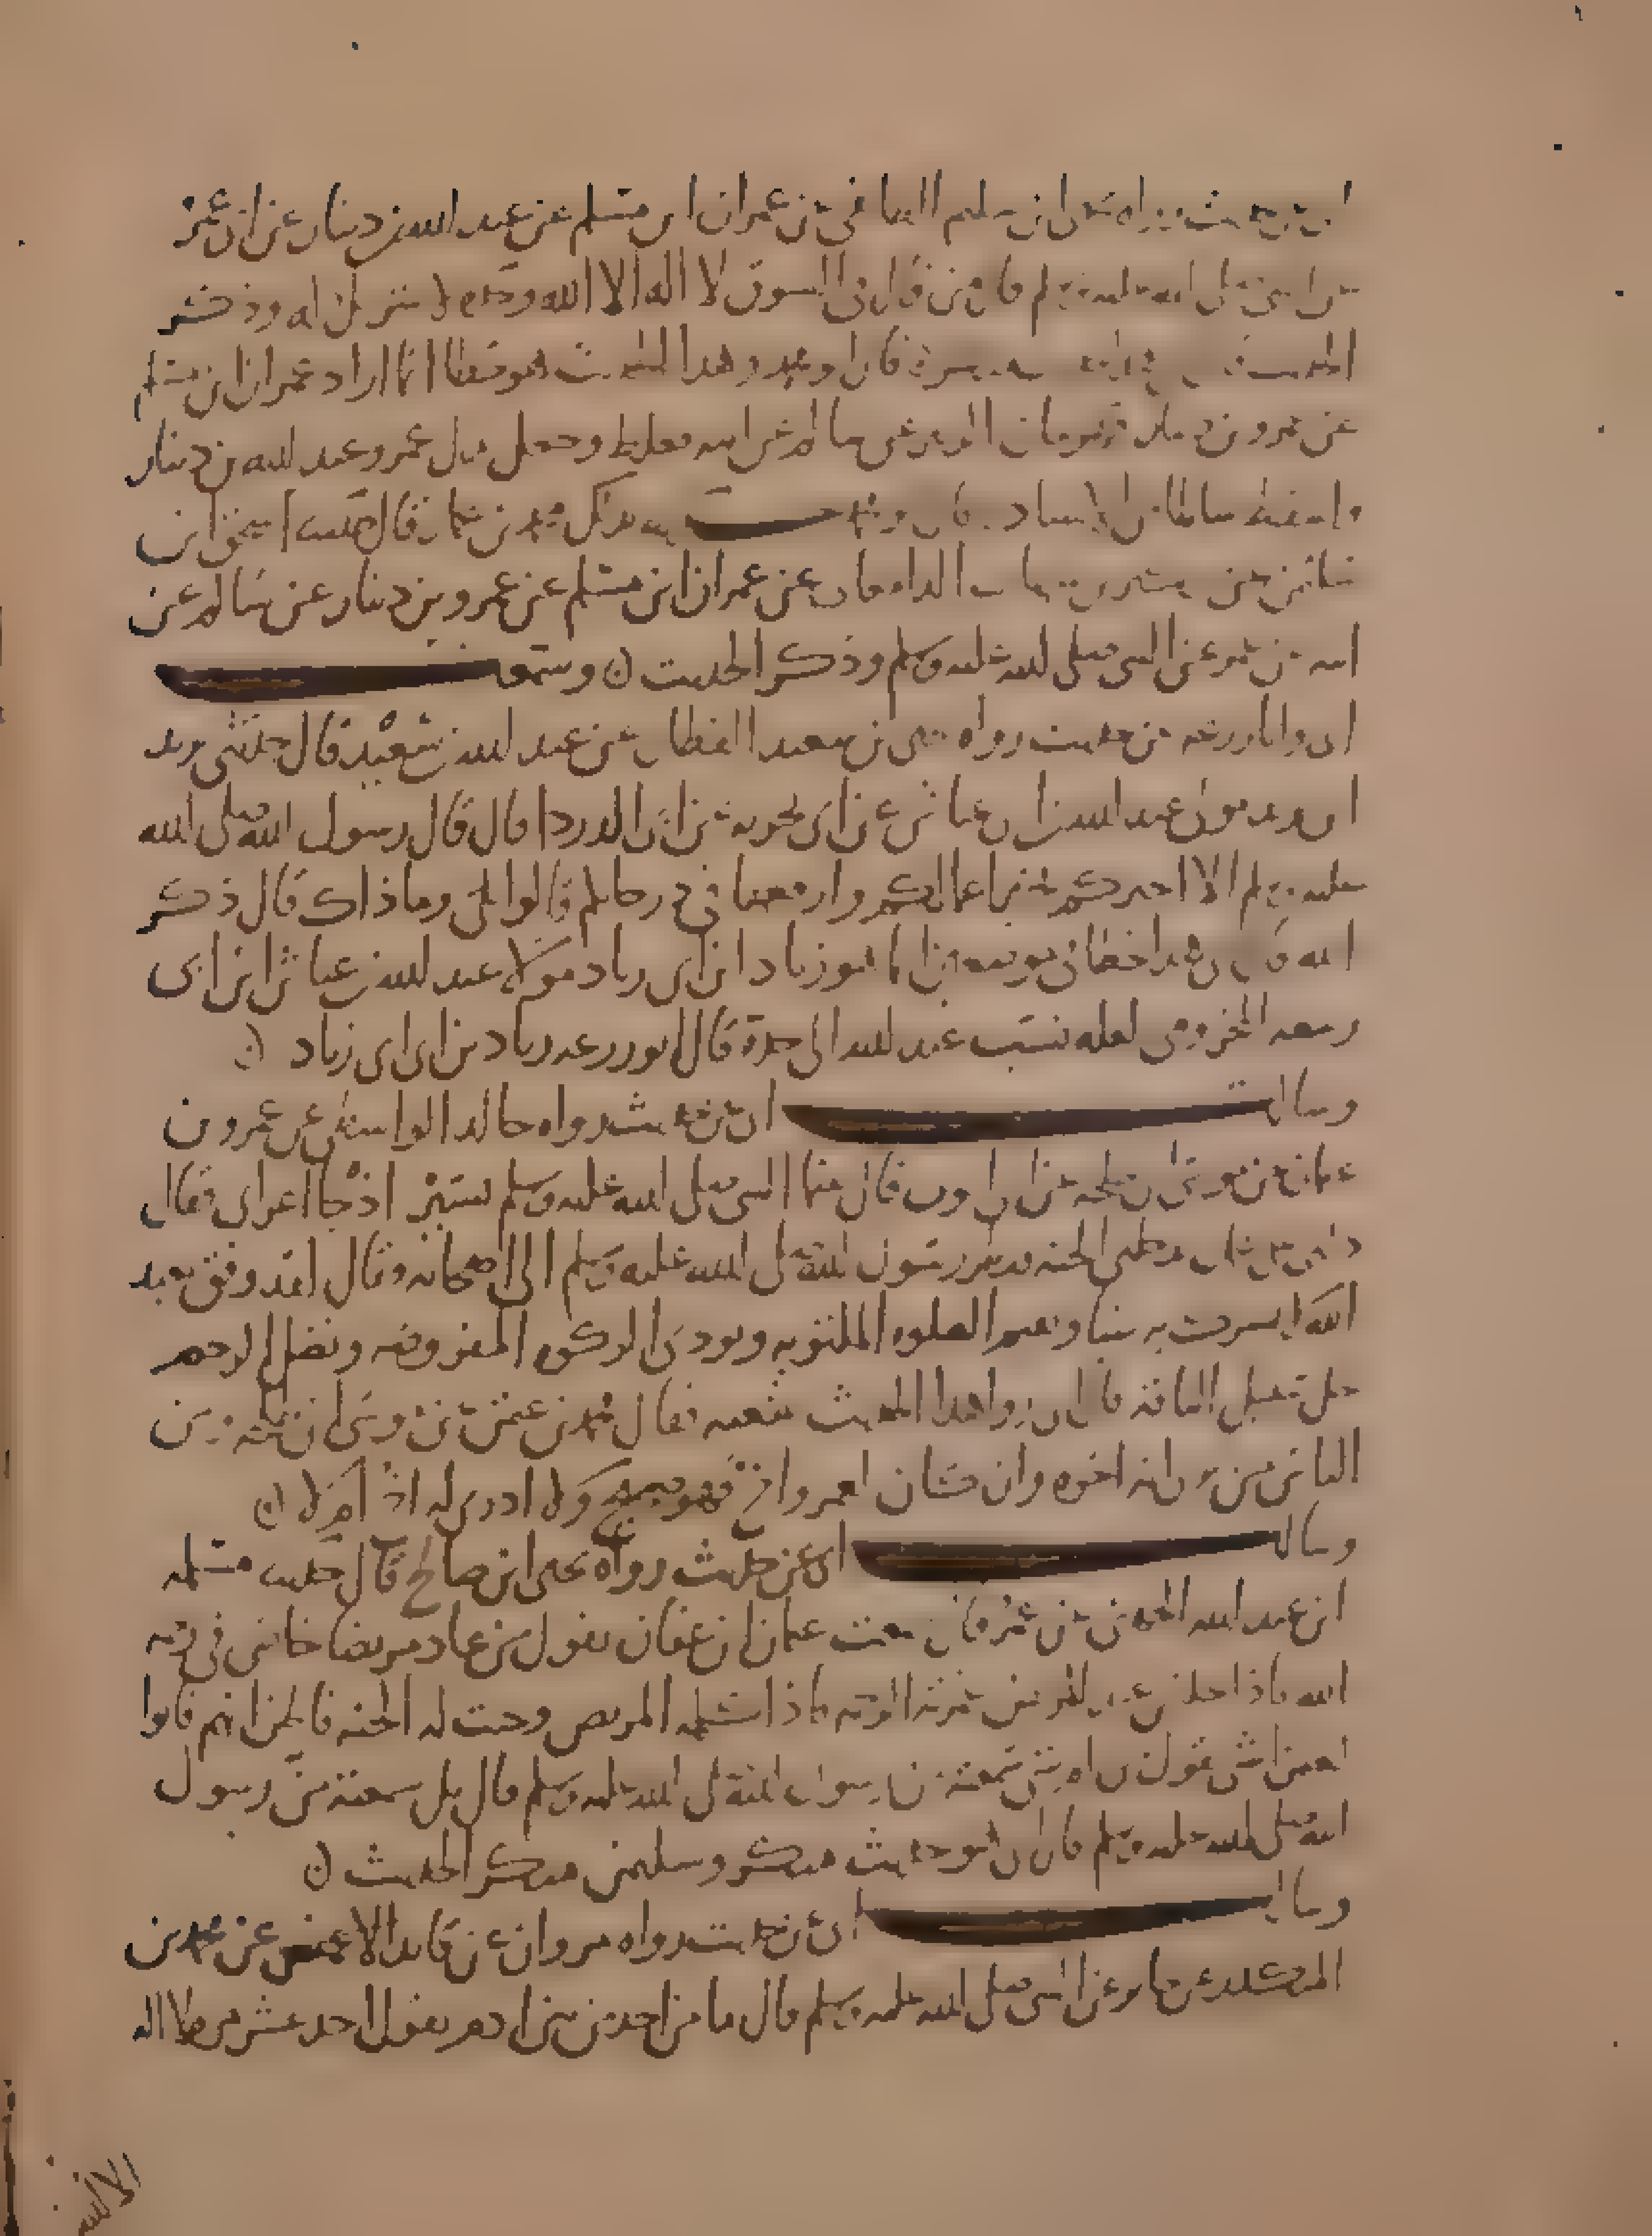 ابي عن حديث رواه يحيى ابن سليم الطائفي عن عمران ابن مسلم عن عبد الله بن دينار عن ابن عمر
عن النبي صلى الله عليه وسلم قال من قال في السوق لا اله الا الله وحده لا شريك له وذكر
الحديث قال ابو محمد وهذا الحديث هو خطا انما اراد عمران ابن مسلم
عن عمرو بن دينار قهرمان ال الزبير عن سالم عن ابيه فغلط وجعل بدل عمرو عبد الله بن دينار
واسقط سالما من الاسناد قال ابو محمد حدثنا بذلك محمد بن عمار قال حدثنا اسحق ابن
سليمن عن بكير بن شهاب الدامغاني عن عمران ابن مسلم عن عمرو بن دينار عن سالم عن
ابيه عن عمر عن النبي صلى الله عليه وسلم وذكر الحديث ن وسمعت
ابي وابا زرعه عن حديث رواه يحيى بن سعيد القطان عن عبد الله بن سعيد قال حدثني زياد
ابن ابي زياد مولى عبد الله بن عياش عن ابي بحريه عن ابي الدردا قال قال رسول الله صلى الله
عليه وسلم الا اخبركم بخير اعمالكم وارفعها في درجاتكم قالوا بلى وما ذاك قال ذكر
الله قال ابي هذا خطا انما هو زياد ابن ابي زياد مولى عبد الله بن عياش ابن ابي
ربيعه المخزومي لعله نسب عبد الله الى جده قال ابو زرعه زياد بن ابي زياد ن
وسالت ابي عن حديث رواه خالد الواسطي عن عمرو بن
عثمان عن موسى بن طلحه عن ابي ايوب قال بينما النبي صلى الله عليه وسلم يسير اذ جا اعرابي فقال
دلني على عمل يدخلني الجنه فنظر رسول الله صلى الله عليه وسلم الى اصحابه وقال لقد وفق تعبد
الله لا تشرك به شيا وتقيم الصلوه المكتوبه وتودي الزكوه المفروضه وتصل الرحم
خل سبيل الناقه قال ابي روا هذا الحديث شعبه فقال محمد بن عثمن عن موسى بن طلحه ومن
الناس من يرى انه اخوه وان كان لعمرو اخ فهو صحيح ولا ادري له اخ ام لا ن
وسالت ابي عن حديث رواه يحيى ابن صالح قال حدثنا مسلمه
ابن عبد الله الجهني عن عمر قال سمعت عثمان ابن عفان يقول من عاد مريضا خاض في رحمه
الله فاذا جلس عند المريض غمرته الرحمه فاذا المريض وجبت له الجنه قالوا
رسول الله صلى الله عليه وسلم قال بل سمعته من رسول
الله صلى الله عليه وسلم قال ابي هو حديث منكر وسليمن منكر الحديث ن
وسالت ابي عن حديث رواه مروان عن قايد الاعمش عن محمد بن
المنكدر عن جابر عن النبي صلى الله عليه وسلم قال ما من احد من بني ادم يقول احد عشر مره لا اله
الا الله